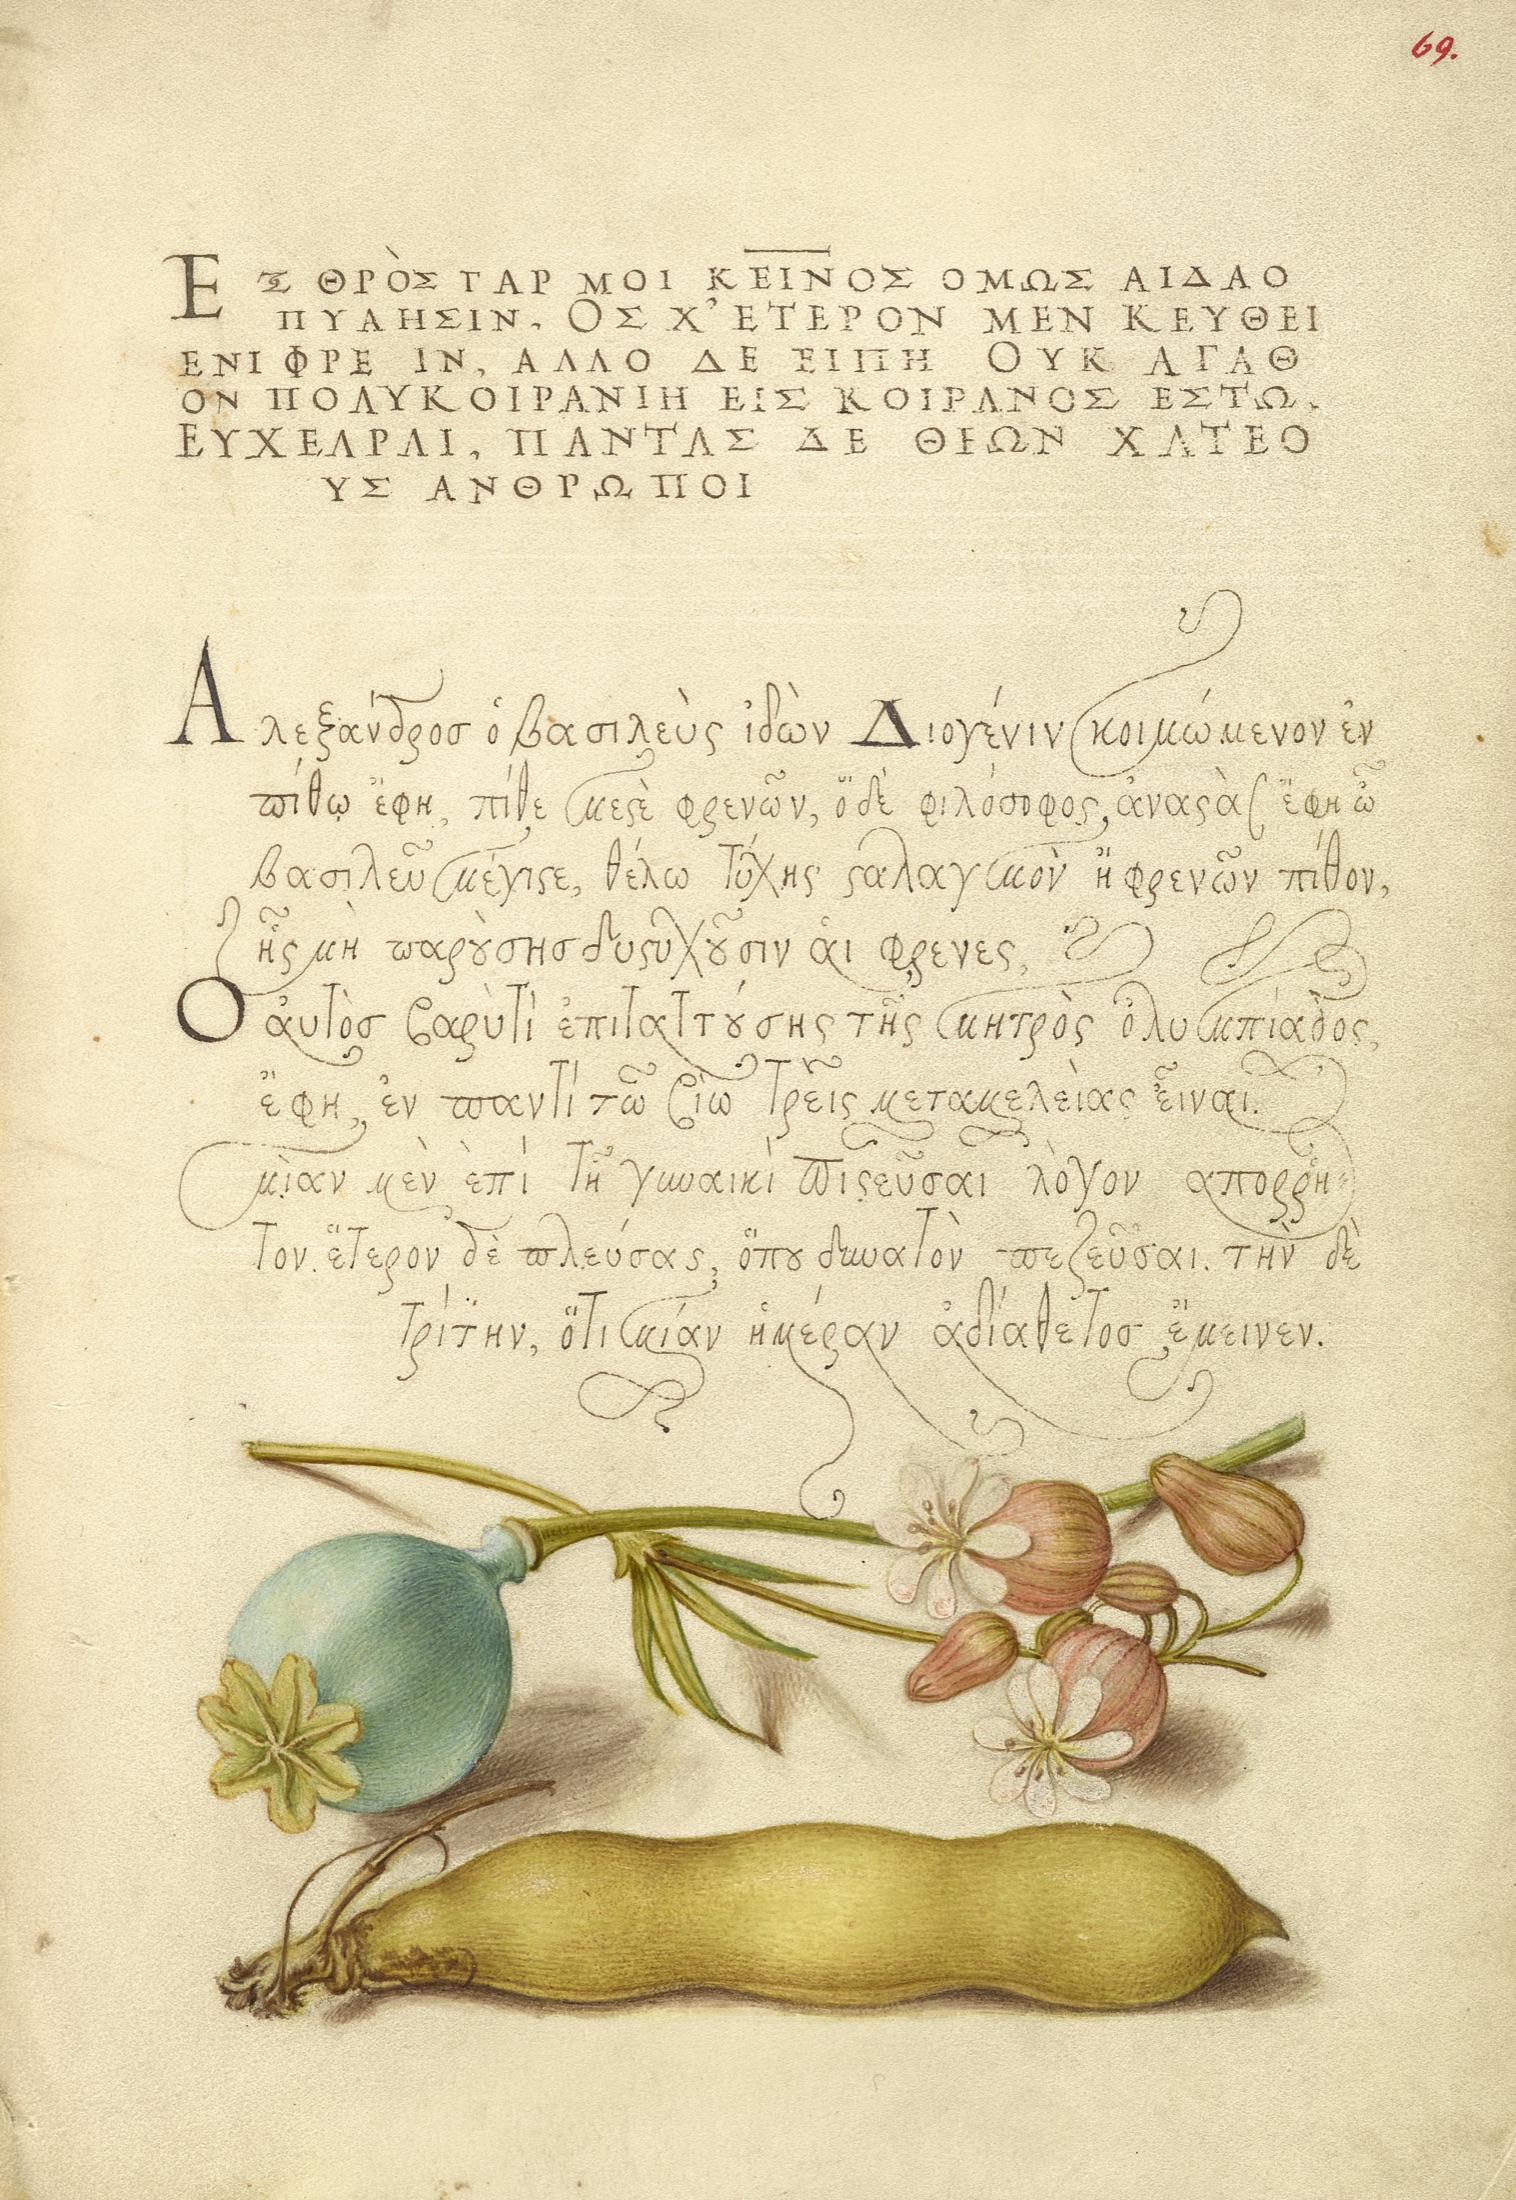 69.
ΕΣ ΘΡῸΣ ΓΑΡ ΜΟΙ ΚΕΙΝΟΣ ΟΜΩΣ ΑΙΔΑΟ
ΠΥΛΗΣΙΝ, ΟΣ Χ' ΕΤΕΡΟΝ ΜΕΝ ΚΕΥΘΕΙ
ΕΝΙ ΦΡΕ ΙΝ, ΑΛΛΟ ΔΕ ΕΙΠΗ ΟΥΚ ΑΓΑΘ
ΟΝ ΠΟΛΥΚΟΙΡΑΝΙΗ ΕΙΣ ΚΟΙΡΑΝΟΣ ΕΣΤΩ.
ΕΥΧΕΑΡΑΙ, ΠΑΝΤΑΣ ΔΕ ΘΕΩΝ ΧΑΤΕΟ
ΥΣ ΑΝΘΡΩΠΟΙ
Αλεξάνδροσ ὁ βασιλεὺς ἰδὼν Διογένιν κοιμώμενον ἐν
πίθῳ ἔφη, πίθε μεϛὲ φρενῶν, ὅδὲ φιλόσοφος, ἀναϛὰς ἔφη ὦ
βασιλεῦ μέγιϛε, θέλω Τύχης ϛαλαγμὸν ἢ φρενῶν πίθον,
ἧς μὴ παρȣ̀σησ δυϛυχȣ͂σιν ἁι φρενες,
Ο ἀυτὸσ βαρὺτὶ ἐπιταττȣ́σης τῆς μητρὸς ὀλυμπίαδος,
ἔφη, ἐν παντὶ τῶ βίω τρεῖς μεταμελὲιας εἶναι.
μὶαν μὲν ὲπὶ τῆ γυναικὶ πιϛεῦσαι λὸγον απορρή-
τον. ἕτερον δὲ πλεύσας, ὅπȣ δυνατὸν πεζεῦσαι. τὴν δὲ
τρίτην, ὅτι μίαν ἡμέραν ἀδίαθετοσ ἔμεινεν.